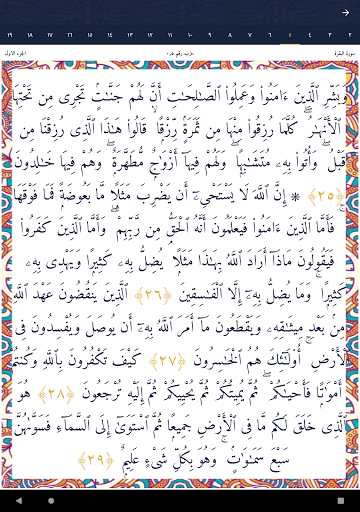 ٢ ٣ ٤ ٥ ٦ ٧ ٨ ٩ ١٠ ١١ ١٢ ١٣ ١٤ ١٥ ١٦ ١٧ ١٨ ١٩
سورة البقرة الجزء الاول
وَبَشِّرِ ٱلَّذِينَ ءَامَنُوا۟ وَعَمِلُوا۟ ٱلصَّـٰلِحَـٰتِ أَنَّ لَهُمْ جَنَّـٰتٍ تَجْرِى مِن تَحْتِهَا
ٱلْأَنْهَـٰرُ ۖ كُلَّمَا رُزِقُوا۟ مِنْهَا مِن ثَمَرَةٍ رِّزْقًا ۙ قَالُوا۟ هَـٰذَا ٱلَّذِى رُزِقْنَا مِن
قَبْلُ ۖ وَأُتُوا۟ بِهِۦ مُتَشَـٰبِهًا ۖ وَلَهُمْ فِيهَآ أَزْوَٰجٌ مُّطَهَّرَةٌ ۖ وَهُمْ فِيهَا خَـٰلِدُونَ
﴿٢٥﴾ ۞ إِنَّ ٱللَّهَ لَا يَسْتَحْىِۦٓ أَن يَضْرِبَ مَثَلًا مَّا بَعُوضَةً فَمَا فَوْقَهَا ۚ
فَأَمَّا ٱلَّذِينَ ءَامَنُوا۟ فَيَعْلَمُونَ أَنَّهُ ٱلْحَقُّ مِن رَّبِّهِمْ ۖ وَأَمَّا ٱلَّذِينَ كَفَرُوا۟
فَيَقُولُونَ مَاذَآ أَرَادَ ٱللَّهُ بِهَـٰذَا مَثَلًا ۘ يُضِلُّ بِهِۦ كَثِيرًا وَيَهْدِى بِهِۦ
كَثِيرًا ۚ وَمَا يُضِلُّ بِهِۦٓ إِلَّا ٱلْفَـٰسِقِينَ ﴿٢٦﴾ ٱلَّذِينَ يَنقُضُونَ عَهْدَ ٱللَّهِ
مِنۢ بَعْدِ مِيثَـٰقِهِۦ وَيَقْطَعُونَ مَآ أَمَرَ ٱللَّهُ بِهِۦٓ أَن يُوصَلَ وَيُفْسِدُونَ فِى
ٱلْأَرْضِ ۚ أُو۟لَـٰٓئِكَ هُمُ ٱلْخَـٰسِرُونَ ﴿٢٧﴾ كَيْفَ تَكْفُرُونَ بِٱللَّهِ وَكُنتُمْ
أَمْوَٰتًا فَأَحْيَـٰكُمْ ۖ ثُمَّ يُمِيتُكُمْ ثُمَّ يُحْيِيكُمْ ثُمَّ إِلَيْهِ تُرْجَعُونَ ﴿٢٨﴾ هُوَ
ٱلَّذِى خَلَقَ لَكُم مَّا فِى ٱلْأَرْضِ جَمِيعًا ثُمَّ ٱسْتَوَىٰٓ إِلَى ٱلسَّمَآءِ فَسَوَّىٰهُنَّ
سَبْعَ سَمَـٰوَٰتٍ ۚ وَهُوَ بِكُلِّ شَىْءٍ عَلِيمٌ ﴿٢٩﴾